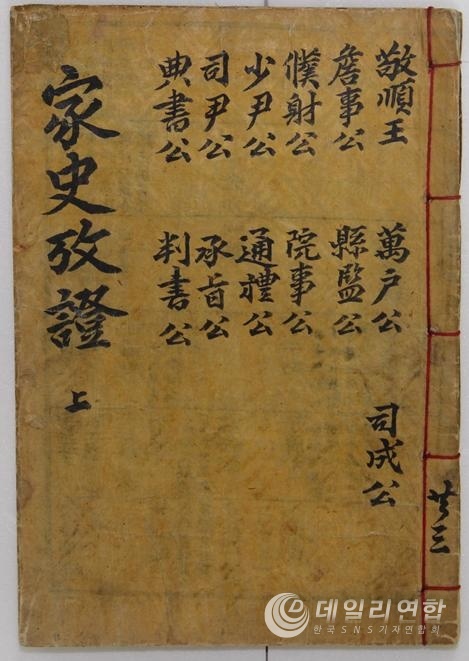 共三
敬順王
詹事公
僕射公
少尹公
司尹公
典書公
萬戶公
縣監公
院事公
通禮公
承旨公
判書公
司成公
家史攷證 上
데일리연합
한국SNS기자연합회